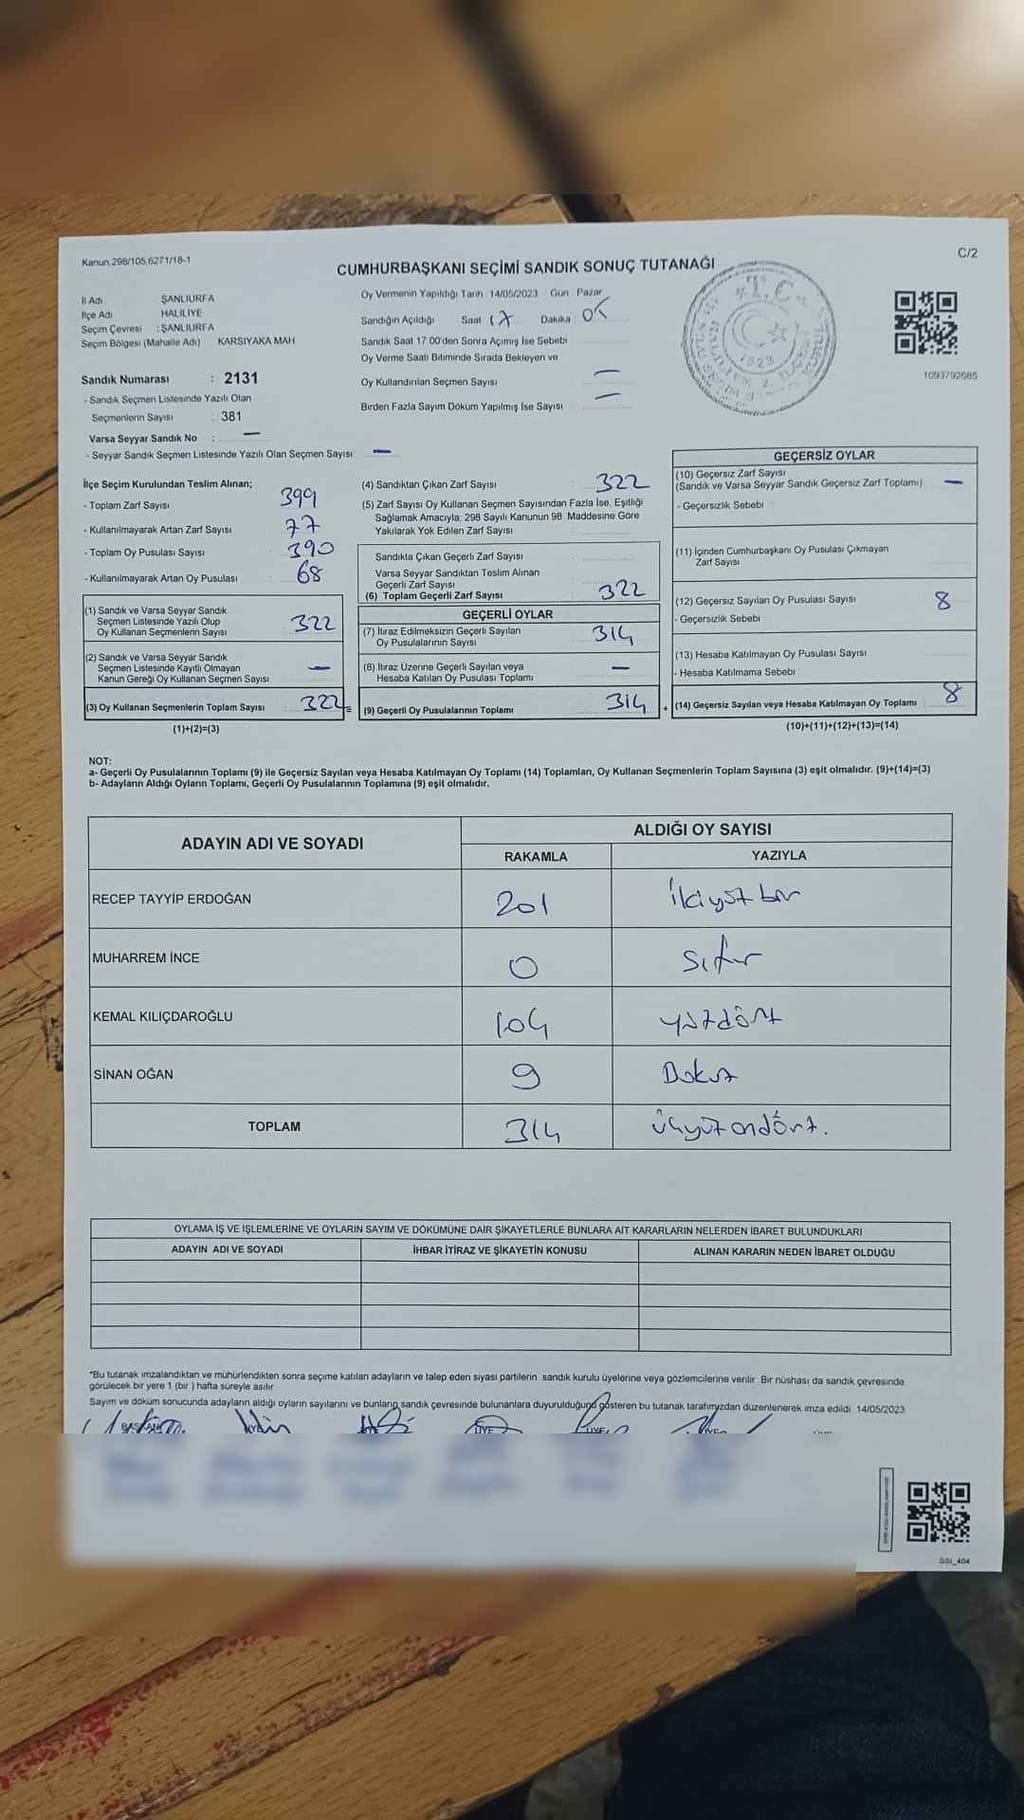 Kanun 298/105,6271/18-1
C/2
CUMHURBAŞKANI SEÇİMİ SANDIK SONUÇ TUTANAĞI
İl Adı ŞANLIURFA
İlçe Adı HALİLİYE
Seçim Çevresi : ŞANLIURFA
Seçim Bölgesi (Mahalle Adı) KARSIYAKA MAH
Sandık Numarası : 2131
- Sandık Seçmen Listesinde Yazılı Olan
Seçmenlerin Sayısı : 381
Varsa Seyyar Sandık No : —
- Seyyar Sandık Seçmen Listesinde Yazılı Olan Seçmen Sayısı: —
Oy Vermenin Yapıldığı Tarih 14/05/2023 Gün Pazar
Sandığın Açıldığı Saat 17 Dakika 05
Sandık Saat 17.00'den Sonra Açımış İse Sebebi
Oy Verme Saati Bitiminde Sırada Bekleyen ve
Oy Kullandırılan Seçmen Sayısı —
Birden Fazla Sayım Döküm Yapılmış İse Sayısı —
T.C.
1923
1093792685
İlçe Seçim Kurulundan Teslim Alınan;
- Toplam Zarf Sayısı 399
- Kullanılmayarak Artan Zarf Sayısı 77
- Toplam Oy Pusulası Sayısı 390
- Kullanılmayarak Artan Oy Pusulası 68
(1) Sandık ve Varsa Seyyar Sandık
Seçmen Listesinde Yazılı Olup
Oy Kullanan Seçmenlerin Sayısı 322
(2) Sandık ve Varsa Seyyar Sandık
Seçmen Listesinde Kayıtlı Olmayan
Kanun Gereği Oy Kullanan Seçmen Sayısı —
(3) Oy Kullanan Seçmenlerin Toplam Sayısı 322 =
(1)+(2)=(3)
(4) Sandıktan Çıkan Zarf Sayısı 322
(5) Zarf Sayısı Oy Kullanan Seçmen Sayısından Fazla İse, Eşitliği
Sağlamak Amacıyla, 298 Sayılı Kanunun 98 Maddesine Göre
Yakılarak Yok Edilen Zarf Sayısı
Sandıkta Çıkan Geçerli Zarf Sayısı
Varsa Seyyar Sandıktan Teslim Alınan
Geçerli Zarf Sayısı
(6) Toplam Geçerli Zarf Sayısı 322
GEÇERLİ OYLAR
(7) İtiraz Edilmeksizin Geçerli Sayılan
Oy Pusulalarının Sayısı 314
(8) İtiraz Üzerine Geçerli Sayılan veya
Hesaba Katılan Oy Pusulası Toplamı —
(9) Geçerli Oy Pusulalarının Toplamı 314 +
GEÇERSİZ OYLAR
(10) Geçersiz Zarf Sayısı
(Sandık ve Varsa Seyyar Sandık Geçersiz Zarf Toplamı) —
- Geçersizlik Sebebi :
(11) İçinden Cumhurbaşkanı Oy Pusulası Çıkmayan
Zarf Sayısı
(12) Geçersiz Sayılan Oy Pusulası Sayısı 8
- Geçersizlik Sebebi
(13) Hesaba Katılmayan Oy Pusulası Sayısı
- Hesaba Katılmama Sebebi
(14) Geçersiz Sayılan veya Hesaba Katılmayan Oy Toplamı 8
(10)+(11)+(12)+(13)=(14)
NOT:
a- Geçerli Oy Pusulalarının Toplamı (9) ile Geçersiz Sayılan veya Hesaba Katılmayan Oy Toplamı (14) Toplamları, Oy Kullanan Seçmenlerin Toplam Sayısına (3) eşit olmalıdır. (9)+(14)=(3)
b- Adayların Aldığı Oyların Toplamı, Geçerli Oy Pusulalarının Toplamına (9) eşit olmalıdır.
ADAYIN ADI VE SOYADI
ALDIĞI OY SAYISI
RAKAMLA YAZIYLA
RECEP TAYYİP ERDOĞAN 201 İkiyüz bir
MUHARREM İNCE 0 Sıfır
KEMAL KILIÇDAROĞLU 104 yüzdört
SİNAN OĞAN 9 Dokuz
TOPLAM 314 üçyüz ondört.
OYLAMA İŞ VE İŞLEMLERİNE VE OYLARIN SAYIM VE DÖKÜMÜNE DAİR ŞİKAYETLERLE BUNLARA AİT KARARLARIN NELERDEN İBARET BULUNDUKLARI
ADAYIN ADI VE SOYADI İHBAR İTİRAZ VE ŞİKAYETİN KONUSU ALINAN KARARIN NEDEN İBARET OLDUĞU
*Bu tutanak imzalandıktan ve mühürlendikten sonra seçime katılan adayların ve talep eden siyasi partilerin sandık kurulu üyelerine veya gözlemcilerine verilir Bir nüshası da sandık çevresinde
görülecek bir yere 1 (bir) hafta süreyle asılır
Sayım ve döküm sonucunda adayların aldığı oyların sayılarını ve bunların sandık çevresinde bulunanlara duyurulduğunu gösteren bu tutanak tarafımızdan düzenlenerek imza edildi. 14/05/2023
BAŞKAN ÜYE ÜYE ÜYE
GGI_404